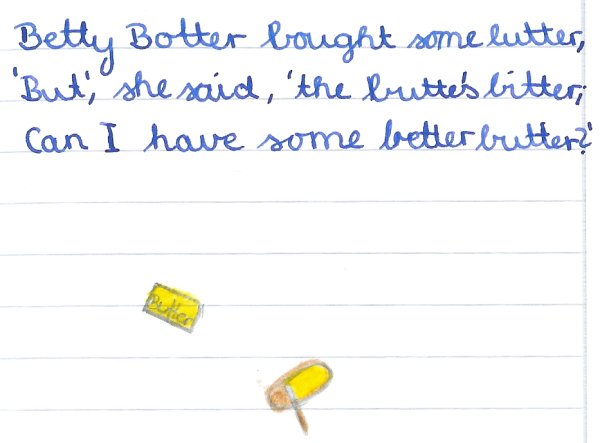 Betty Botter bought some lutter,
'But', she said, 'the butte's bitter;
Can I have some better butter?'
Butter